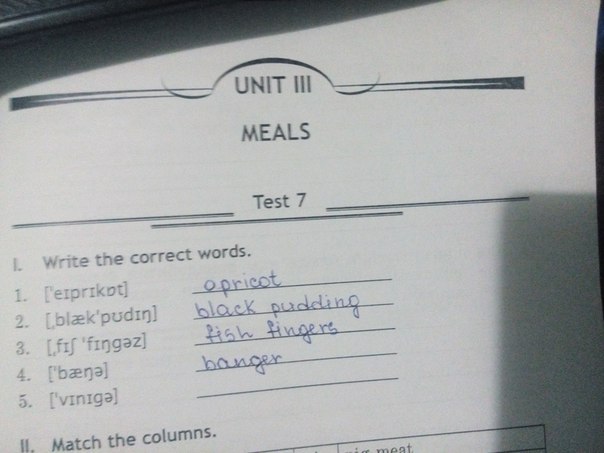 UNIT III
MEALS
Test 7
I. Write the correct words.
1. ['eɪprɪkɒt] apricot
2. [ˌblæk'pʊdɪŋ] black pudding
3. [ˌfɪʃ 'fɪŋgəz] fish fingers
4. ['bæŋə] banger
5. ['vɪnɪgə]
II. Match the columns.
meat